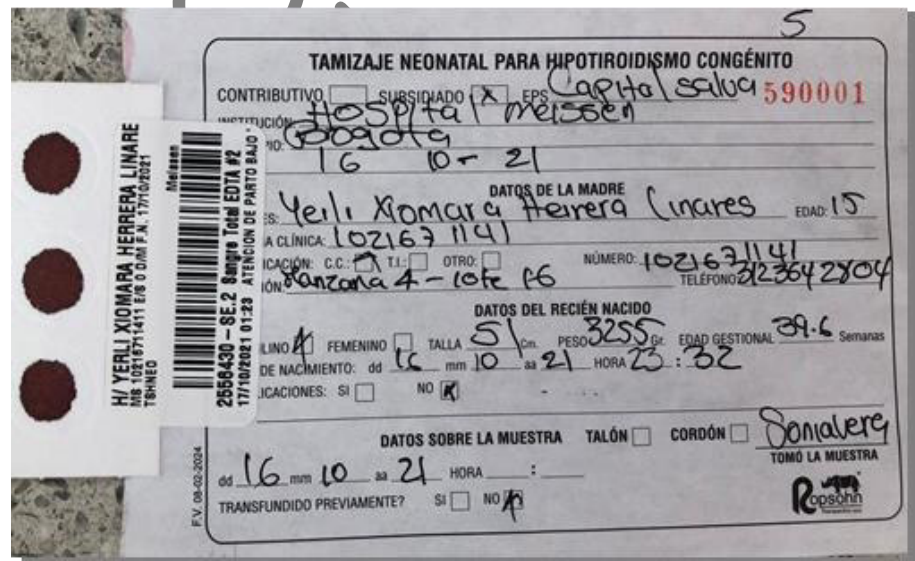 5
TAMIZAJE NEONATAL PARA HIPOTIROIDISMO CONGÉNITO
CONTRIBUTIVO SUBSIDIADO X EPS Capital salud 590001
Hospital Meissen
Bogota
16 10 - 21
DATOS DE LA MADRE
Yeili Xiomara Herrera Linares EDAD: 15
A CLÍNICA: 1021671141
ICACIÓN: C.C.: T.I.: OTRO: NÚMERO: 1021671141
Manzana 4 - lote TELÉFONO 3123642804
DATOS DEL RECIÉN NACIDO
LINO X FEMENINO TALLA 51 Cm. PESO 3255 Gr. EDAD GESTIONAL 39.6 Semanas
DE NACIMIENTO: dd 16 mm 10 aa 21 HORA 23 : 32
LICACIONES: SI NO X
DATOS SOBRE LA MUESTRA TALÓN CORDÓN
TOMÓ LA MUESTRA
dd 16 mm 10 aa 21 HORA :
TRANSFUNDIDO PREVIAMENTE? SI NO X
Ropsohn
F.V. 08-02-2024
H/ YERLI XIOMARA HERRERA LINARE
MS 10216711411 E/S 0 D/M F.N. 17/10/2021
TSHNEO
Meissen
2556430 - SE.2 Sangre Total EDTA #2
17/10/2021 01:23 ATENCION DE PARTO BAJO